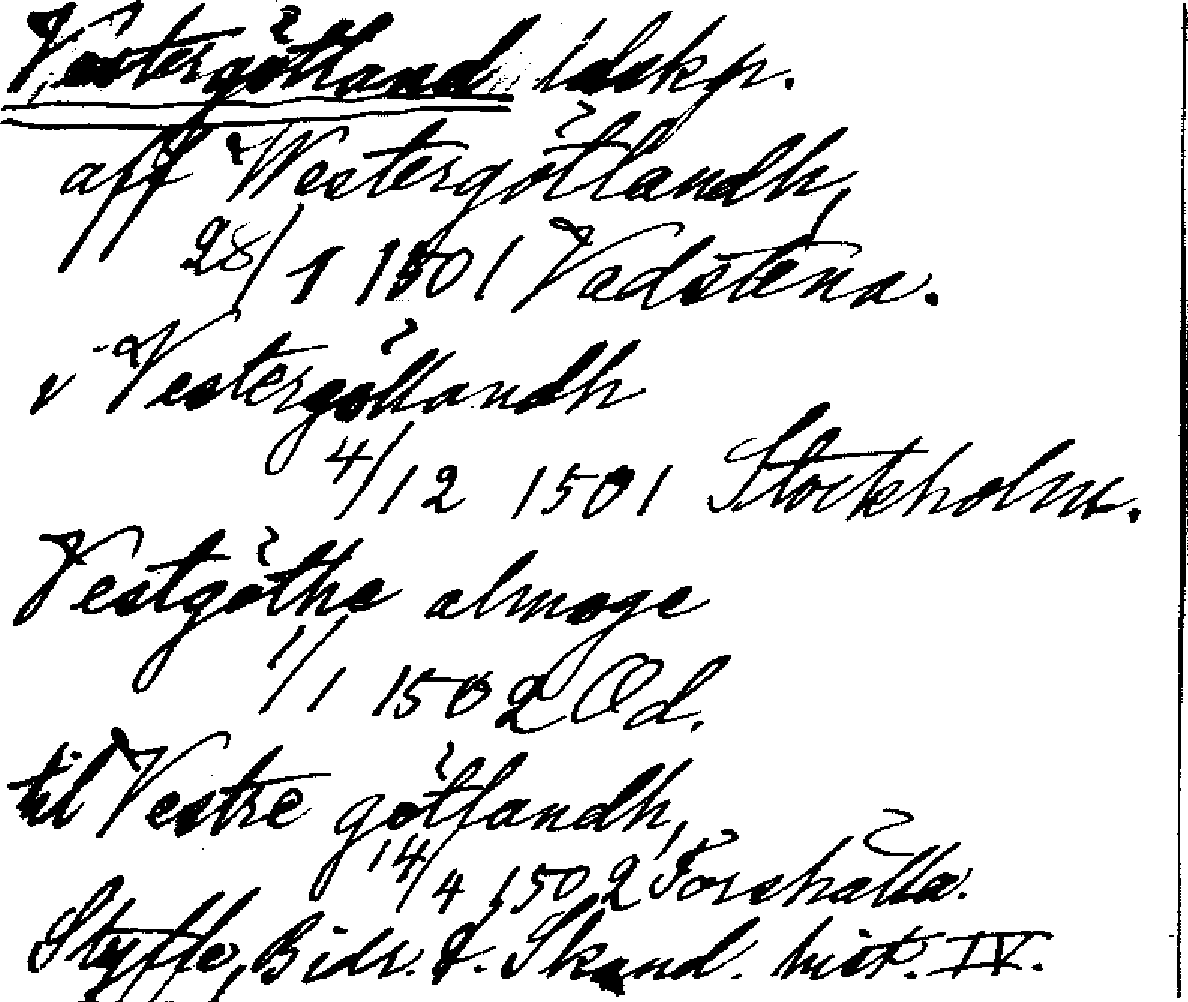 Vestergötland, ldskp.
aff Westergötlandh,
28/1 1501 Vadstena.
v Vestergötlandh
4/12 1501 Stockholm.
Vestgöthe almoge
1/1 1502 Od.
til Vestre götlandh,
14/4 1502 Torshälla.
Styffe, Bidr. t. Skand. hist. IV.